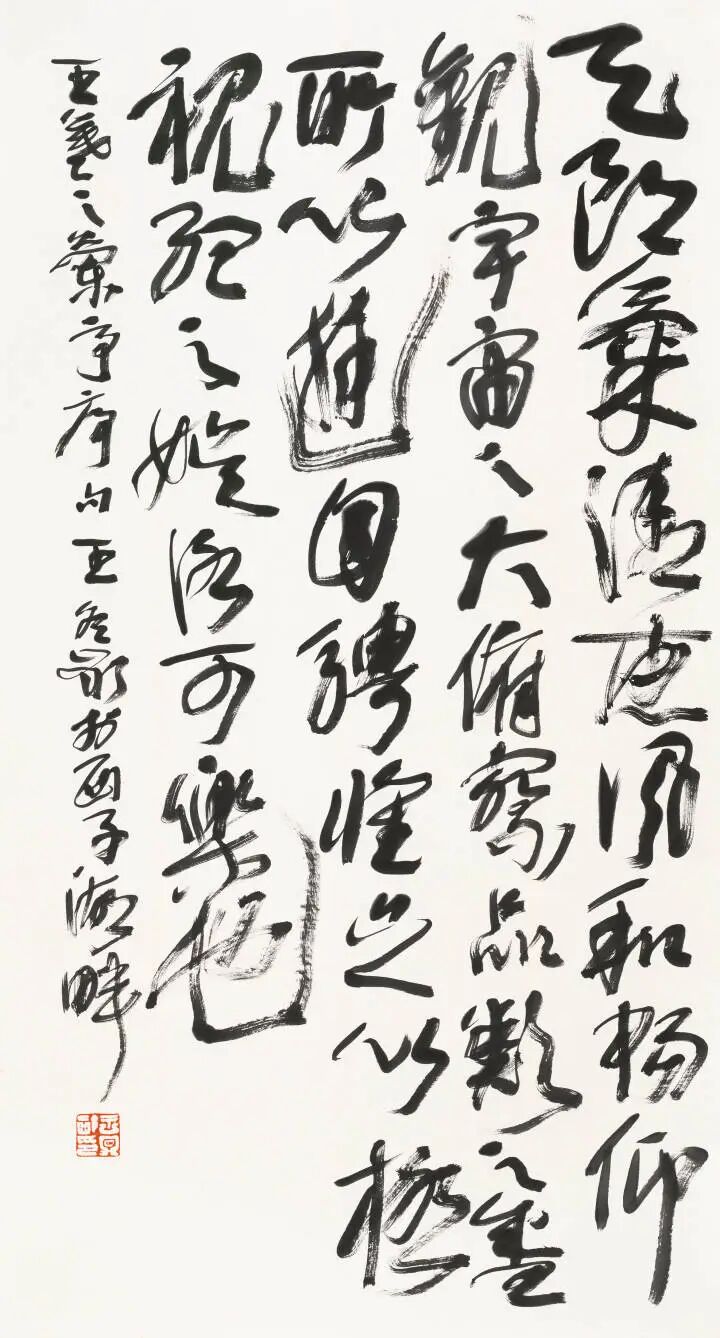 天朗氣清惠風和暢仰
觀宇宙之大俯察品類之盛
所以遊目騁懷足以極
視聽之娛信可樂也
王羲之蘭亭序句王冬齡於西子湖畔